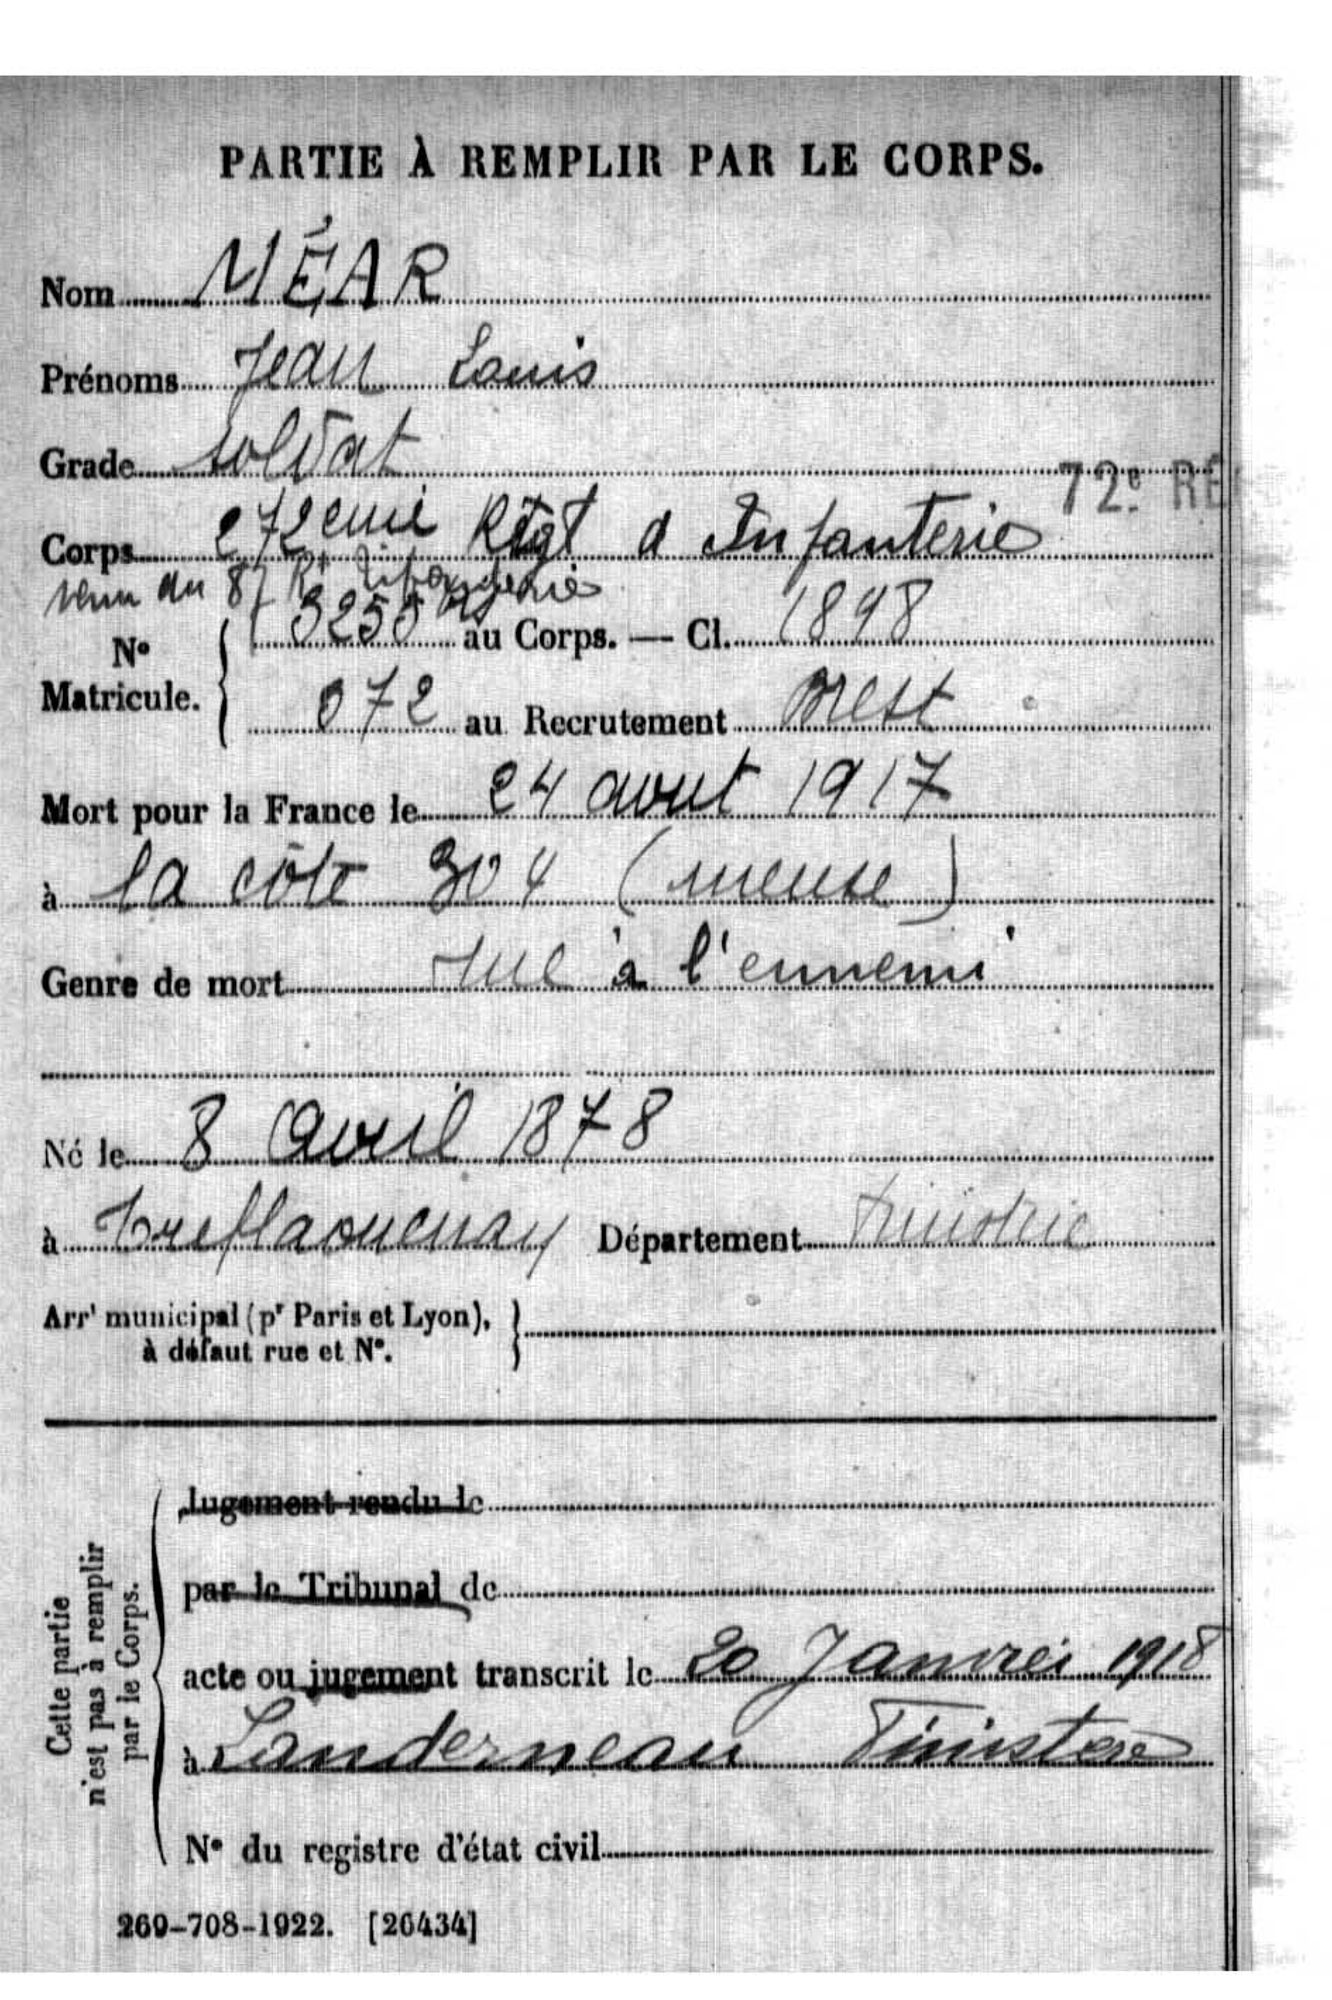 PARTIE À REMPLIR PAR LE CORPS.
Nom MÉAR
Prénoms Jean Louis
Grade soldat
72e RÉ
Corps 272eme Regt d Infanterie
venu du 87 Rt Infanterie
No Matricule. 3255 au Corps. — Cl. 1898
072 au Recrutement Brest
Mort pour la France le 24 aout 1917
à la côte 304 (meuse)
Genre de mort tué à l'ennemi
Né le 8 Avril 1878
à Treflaouenay Département Finistère
Arrt municipal (pr Paris et Lyon),
à défaut rue et No.
Cette partie
n'est pas à remplir
par le Corps.
Jugement rendu le
par le Tribunal de
acte ou jugement transcrit le 20 Janvier 1918
à Landerneau Finistere
No du registre d'état civil
269-708-1922. [26434]